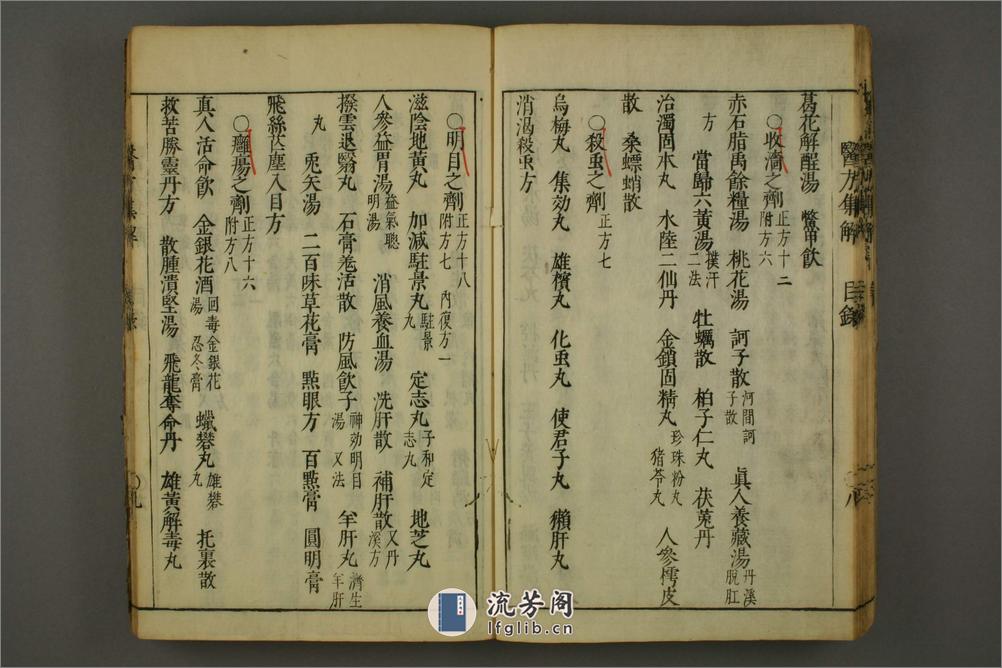 醫方集解 目錄 八
葛花解酲湯 鱉甲飲
○收濇之劑 正方十二 附方六
赤石脂禹餘糧湯 桃花湯 訶子散 河間訶子散 眞人養藏湯 丹溪脫肛
方 當歸六黃湯 撲汗二法 牡蠣散 柏子仁丸 茯菟丹
治濁固本丸 水陸二仙丹 金鎖固精丸 珍珠粉丸 猪苓丸 人參樗皮
散 桑螵蛸散
○殺虫之劑 正方七
烏梅丸 集効丸 雄檳丸 化虫丸 使君子丸 獺肝丸
消渴殺虫方
○明目之劑 正方十八 附方七 內復方一
滋陰地黃丸 加減駐景丸 駐景丸 定志丸 子和定志丸 地芝丸
人參益胃湯 益氣聰明湯 消風養血湯 洗肝散 補肝散 又丹溪方
撥雲退翳丸 石膏羗活散 防風飲子 神効明目湯 又法 羊肝丸 濟生羊肝
丸 兎矢湯 二百味草花膏 點眼方 百點膏 圓明膏
飛絲芒塵入目方
○癰瘍之劑 正方十六 附方八
真人活命飲 金銀花酒 回毒金銀花湯 忍冬膏 蠟礬丸 雄礬丸 托裏散
救苦勝靈丹方 散腫潰堅湯 飛龍奪命丹 雄黃解毒丸
九
流芳阁
lfglib.cn